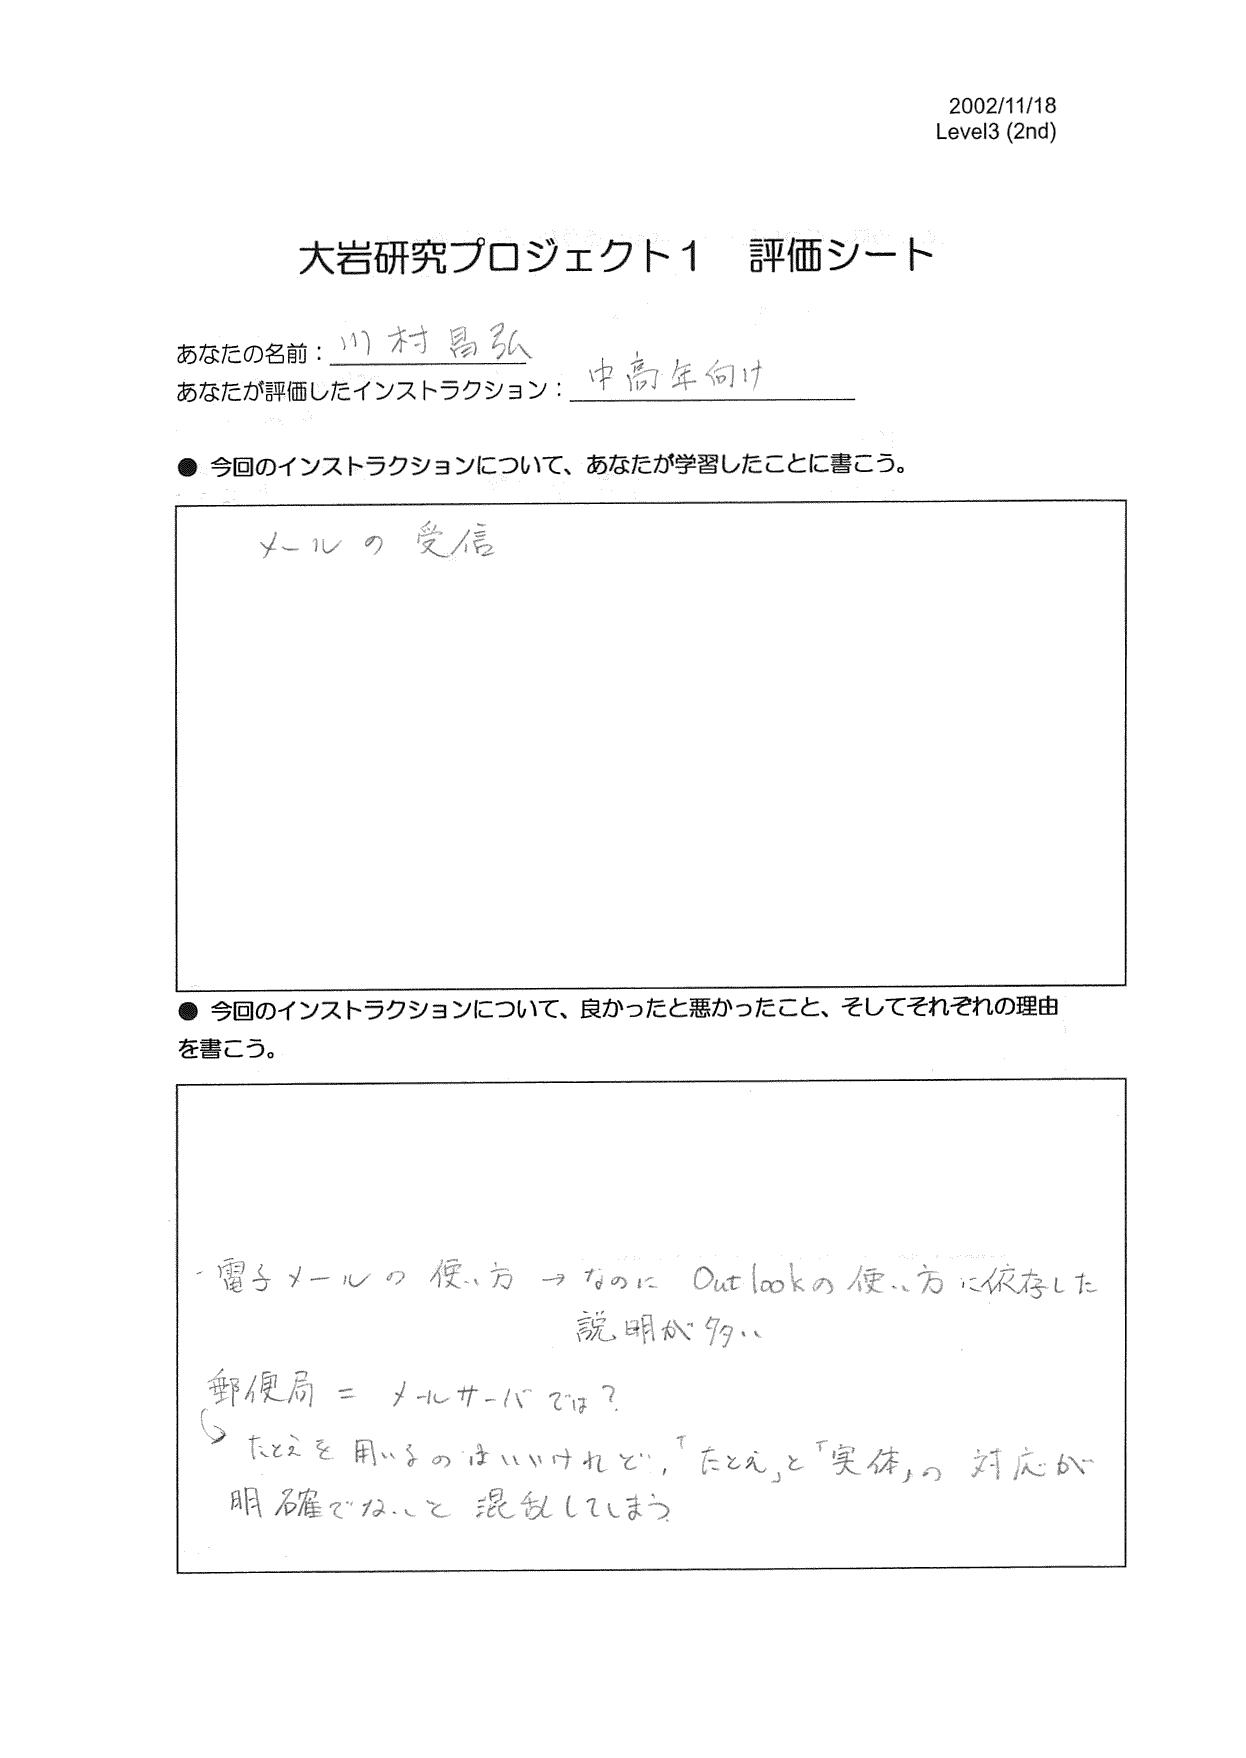 2002/11/18
Level3 (2nd)
大岩研究プロジェクト１　評価シート
あなたの名前：川村昌弘
あなたが評価したインストラクション：中高年向け
● 今回のインストラクションについて、あなたが学習したことに書こう。
メールの受信
● 今回のインストラクションについて、良かったと悪かったこと、そしてそれぞれの理由
を書こう。
・電子メールの使い方 → なのに Outlookの使い方に依存した
説明が多い
郵便局 = メールサーバでは？
たとえを用いるのはいいけれど,「たとえ」と「実体」の対応が
明確でないと混乱してしまう